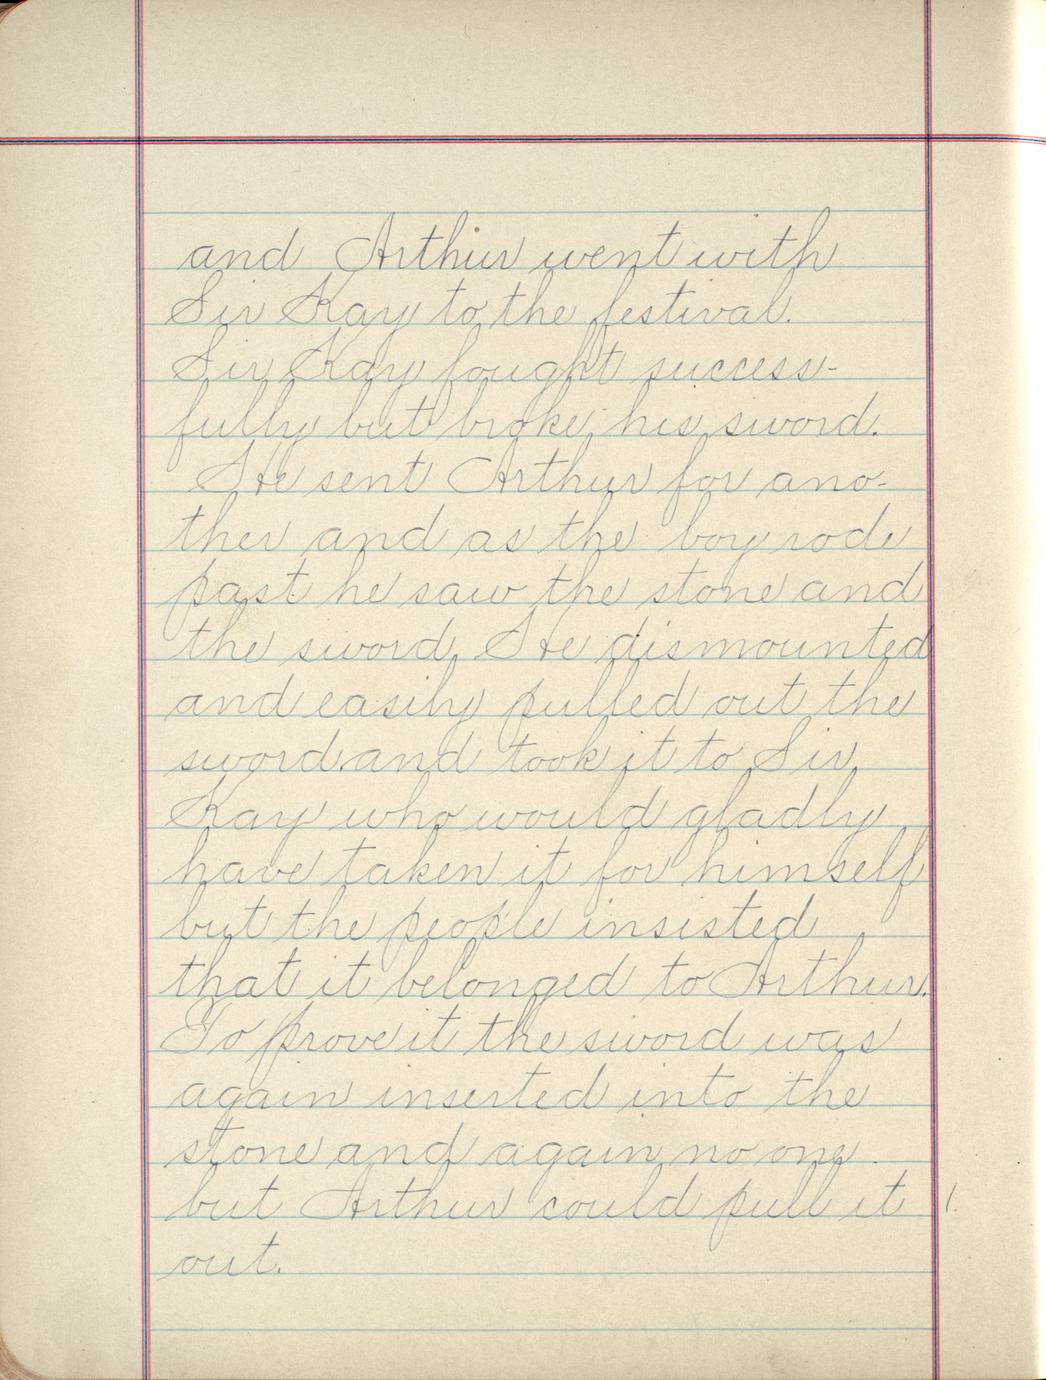 and Arthur went with
Sir Kay to the festival.
Sir Kay fought success-
fully but broke his sword.
He sent Arthur for ano-
ther and as the boy rode
past he saw the stone and
the sword. He dismounted
and easily pulled out the
sword and took it to Sir
Kay who would gladly
have taken it for himself
but the people insisted
that it belonged to Arthur.
To prove it the sword was
again inserted into the
stone and again no one
but Arthur could pull it 1.
out.